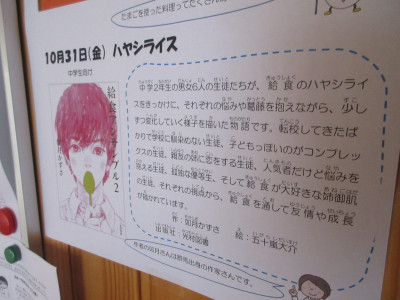 たまごを使った料理ってたくさん
10月31日(金) ハヤシライス
中学生向け
中学2年生の男女6人の生徒たちが、給食のハヤシライ
スをきっかけに、それぞれの悩みや葛藤を抱えながら、少し
ずつ変化していく様子を描いた物語です。転校してきたば
かりで学校に馴染めない生徒、子どもっぽいのがコンプレッ
クスの生徒、親友の姉に恋をする生徒、人気者だけど悩みを
抱える生徒、孤独な優等生、そして給食が大好きな姉御肌
の生徒、それぞれの視点から、給食を通して友情や成長
が描かれています。
作：如月かずさ 絵：五十嵐大介
出版社：光村図書
作者の如月さんは群馬出身の作家さんです。
給食アンサンブル2
如月かずさ